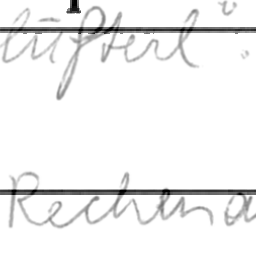 lüfterl".
Rechena